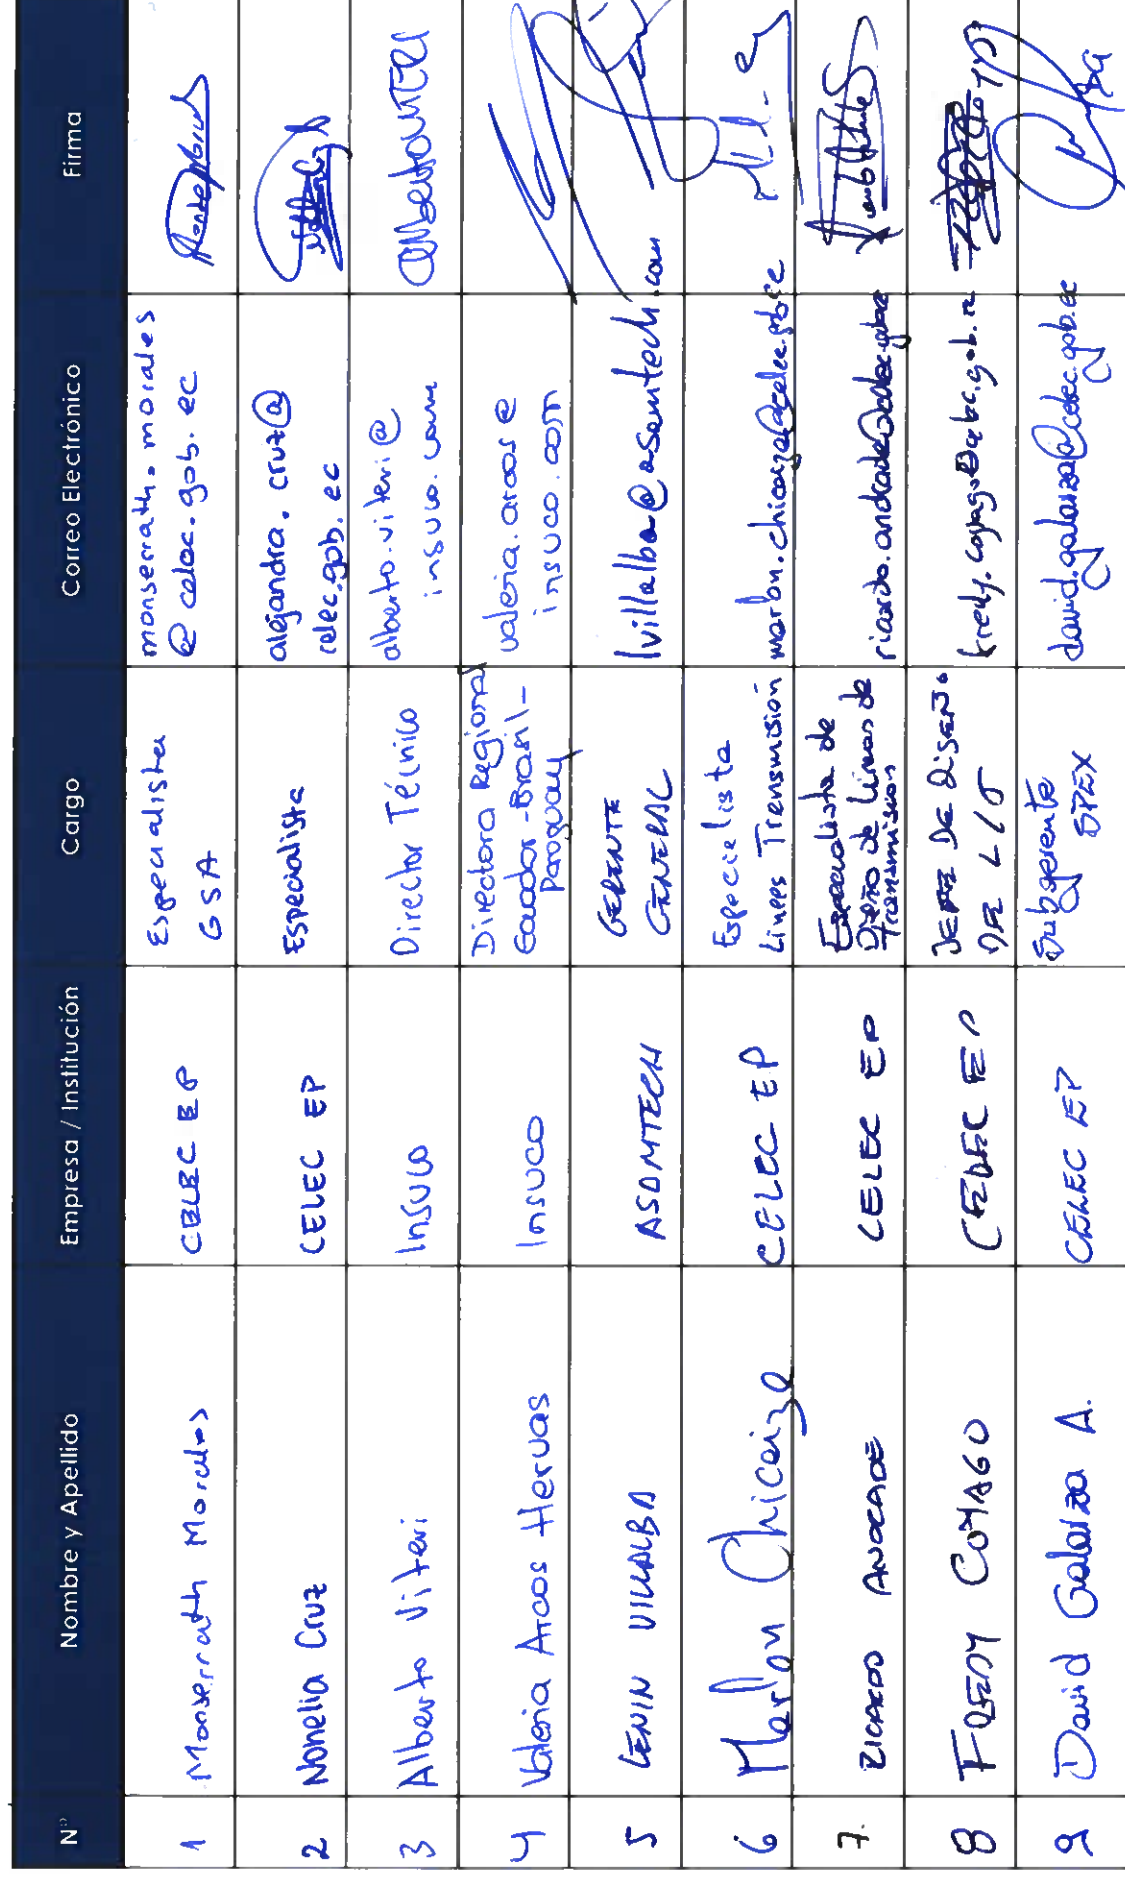 N° Nombre y Apellido Empresa / Institución Cargo Correo Electrónico Firma
1 Monserrath Morales CELEC EP Especialista GSA monserrath.morales @ celec.gob.ec
2 Nonelia Cruz CELEC EP Especialista alejandra.cruz@ celec.gob.ec
3 Alberto Viteri Insuco Director Técnico alberto.viteri@ insuco.com
4 Valeria Arcos Hervas Insuco Directora Regional Ecuador-Brasil- Paraguay valeria.arcos@ insuco.com
5 LENIN VILLALBA ASOMTECH GERENTE GENERAL lvillalba@asomtech.com
6 Marlon Chicaiza CELEC EP Especialista Lineas Transmisión marlon.chicaiza@celec.gob.ec
7. RICARDO ANDRADE CELEC EP Especialista de Diseño de Lineas de Transmision ricardo.andrade@celec.gob.ec
8 FREDY COYAGO CELEC EP JEFE DE DISEÑO DE L/T fredy.coyago@celec.gob.ec
9 David Galarza A. CELEC EP Subgerente david.galarza@celec.gob.ec